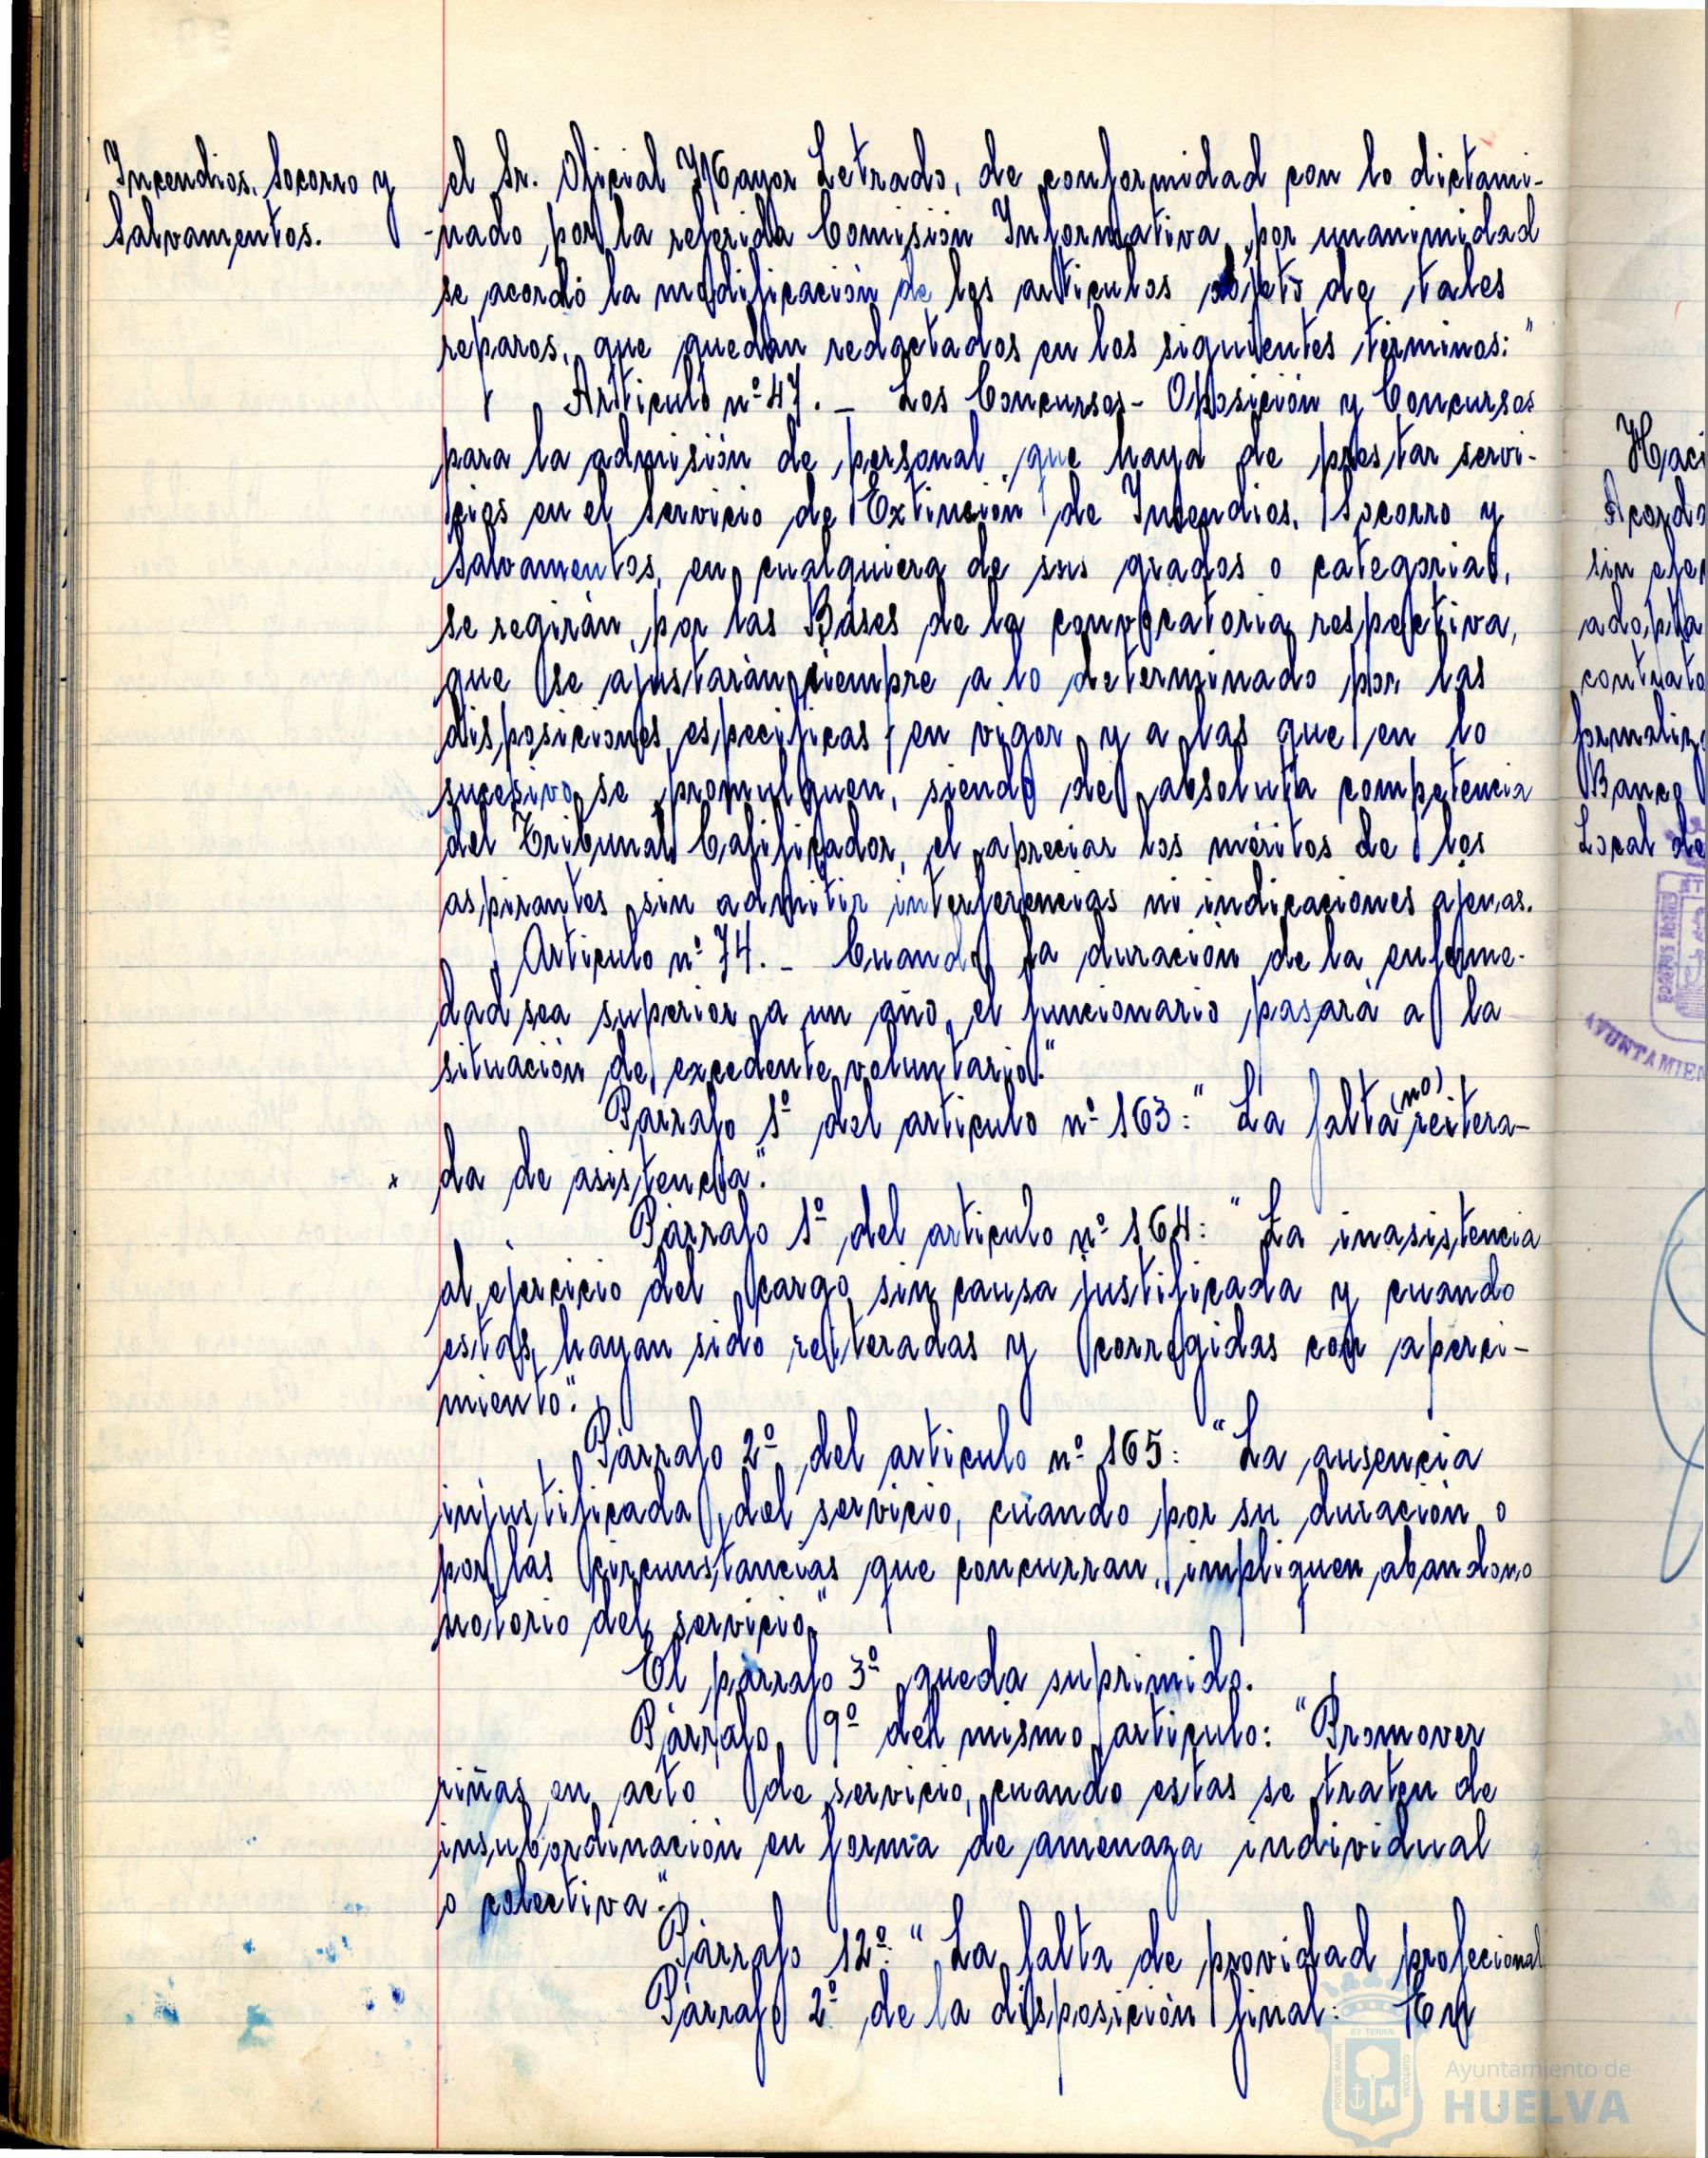 Incendios, Socorro y
Salvamentos.
el Sr. Oficial Mayor Letrado, de conformidad con lo dictami-
nado por la referida Comisión Informativa, por unanimidad
se acordó la modificación de los artículos objeto de tales
reparos, que quedan redactados en los siguientes términos:"
Artículo nº 47. _ Los Concursos- Oposición y Concursos
para la admisión de personal que haya de prestar servi-
cios en el servicio de Extinción de Incendios, Socorro y
Salvamentos, en cualquiera de sus grados o categorias,
se regirán, por las Bases de la convocatoria respectiva,
que se ajustarán siempre a lo determinado por las
disposiciones específicas en vigor y a las que en lo
sucesivo se promulguen, siendo de absoluta competencia
del Tribunal Calificador, el apreciar los méritos de los
aspirantes sin admitir interferencias ni indicaciones ajenas.
Artículo nº 74. _ Cuando la duración de la enferme-
dad sea superior a un año, el funcionario pasará a la
situación de excedente voluntario."
Párrafo 1º del artículo nº 163: "La falta (no) reitera-
da de asistencia".
Párrafo 1º del artículo nº 164: "La inasistencia
al ejercicio del cargo sin causa justificada y cuando
estas hayan sido reiteradas y corregidas con aperci-
miento".
Párrafo 2º del artículo nº 165: "La ausencia
injustificada del servicio, cuando por su duración o
por las circunstancias que concurran, impliquen abandono
notorio del servicio"
El párrafo 3º queda suprimido.
Párrafo 9º del mismo artículo: "Promover
riñas en acto de servicio, cuando estas se traten de
insubordinación en forma de amenaza individual
o colectiva".
Párrafo 12º: "La falta de providad profecional
Párrafo 2º de la disposición final: En
Haci
Acordo
sin efe
adopta
contrato
formaliz
Banco
Local de
AYUNTAMIEN
PORTUS MARIS
ET TERRÆ
CUSTODIA
Ayuntamiento de
HUELVA